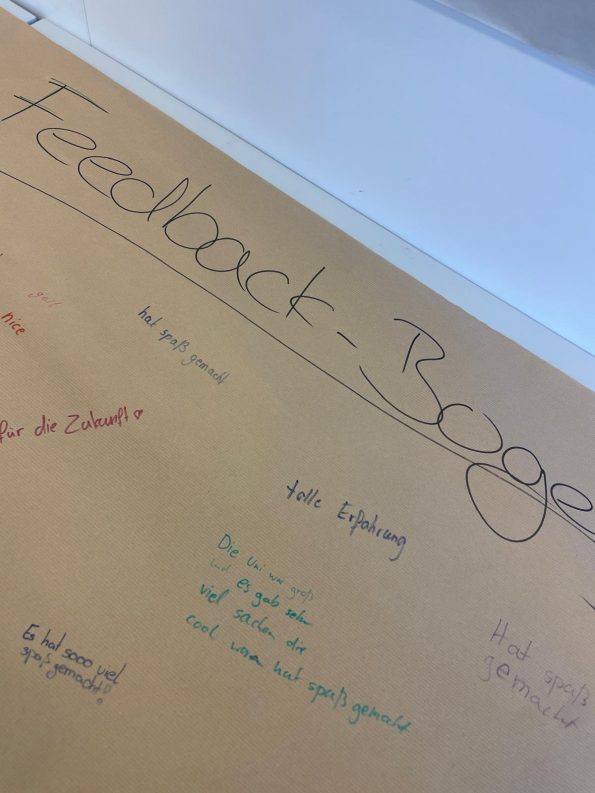 Feedback-Boge
geil
nice
hat spaß gemacht
für die Zukunft ♡
tolle Erfahrung
Die Uni war groß
und es gab sehr
viel sachen die
cool waren hat spaß gemacht
Es hat sooo viel
spaß gemacht!
Hat spaß
gemacht